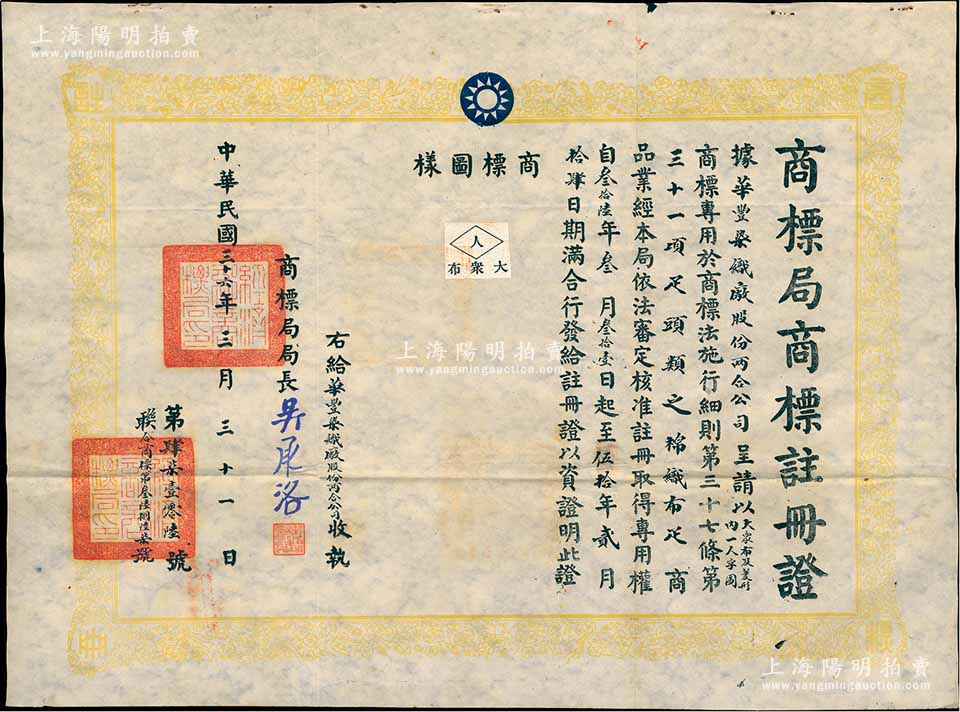 商標局商標註冊證
據華豐染織廠股份兩合公司呈請以大眾布及菱形內一人字圖
商標專用於商標法施行細則第三十七條第
三十一項疋頭類之棉織布疋商
品業經本局依法審定核准註冊取得專用權
自叁拾陸年叁月叁拾壹日起至伍拾年貳月
拾肆日期滿合行發給註冊證以資證明此證
商標圖樣
人
大眾布
右給華豐染織廠股份兩合公司收執
商標局局長吳承洛
中華民國三十六年三月三十一日
第肆柒壹零陸號
聯合商標第叁陸捌陸柒號
上海陽明拍賣
www.yangmingauction.com
上海陽明拍賣
www.yangmingauction.com
上海陽明拍賣
www.yangmingauction.com